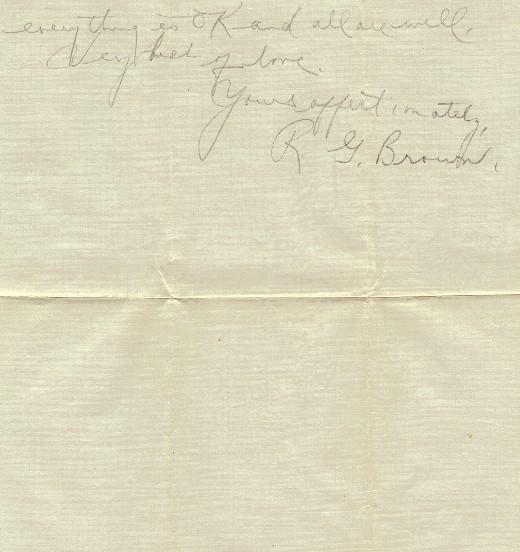 everything is OK and all are well.
Very best of love.
Yours affectionately,
R G. Brown.